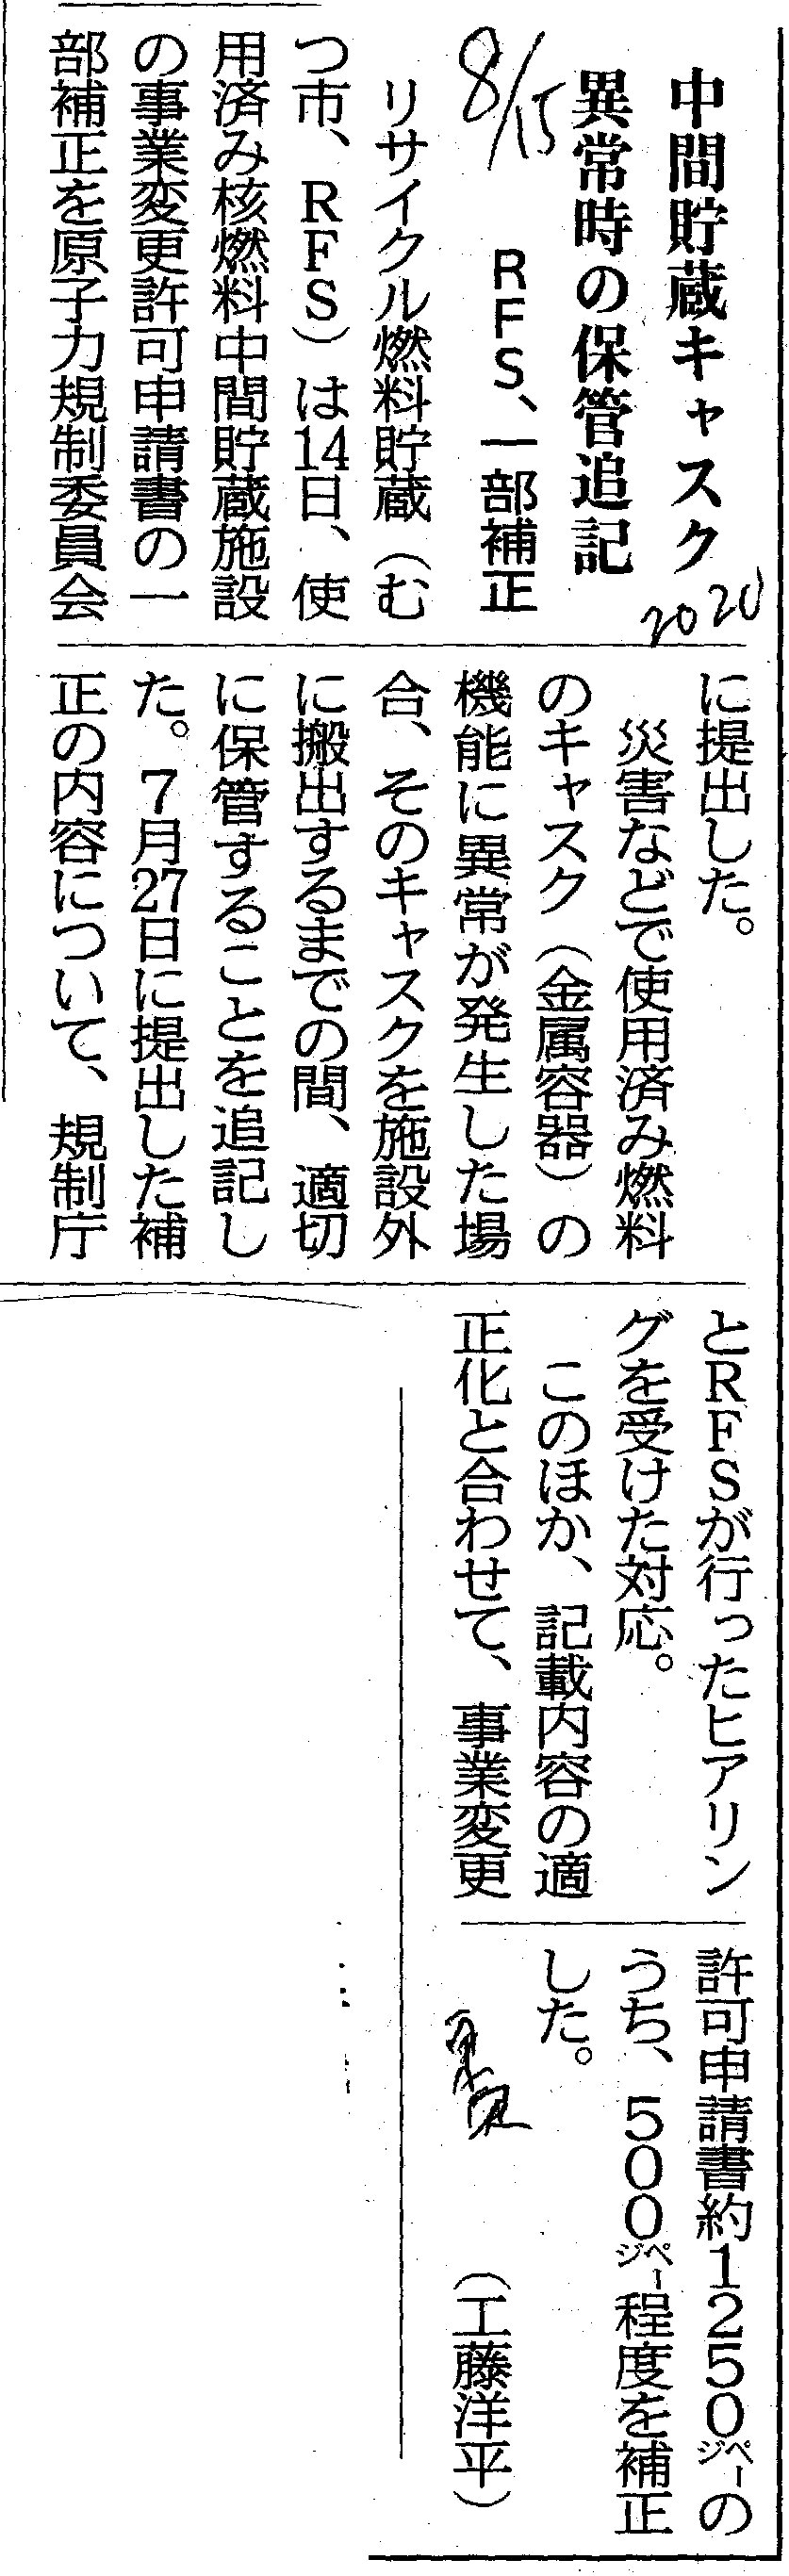 中間貯蔵キャスク
異常時の保管追記
RFS、一部補正
8/15
2020
リサイクル燃料貯蔵（む
つ市、RFS）は14日、使
用済み核燃料中間貯蔵施設
の事業変更許可申請書の一
部補正を原子力規制委員会
に提出した。
災害などで使用済み燃料
のキャスク（金属容器）の
機能に異常が発生した場
合、そのキャスクを施設外
に搬出するまでの間、適切
に保管することを追記し
た。7月27日に提出した補
正の内容について、規制庁
とRFSが行ったヒアリン
グを受けた対応。
このほか、記載内容の適
正化と合わせて、事業変更
許可申請書約1250ページの
うち、500ページ程度を補正
した。
（工藤洋平）